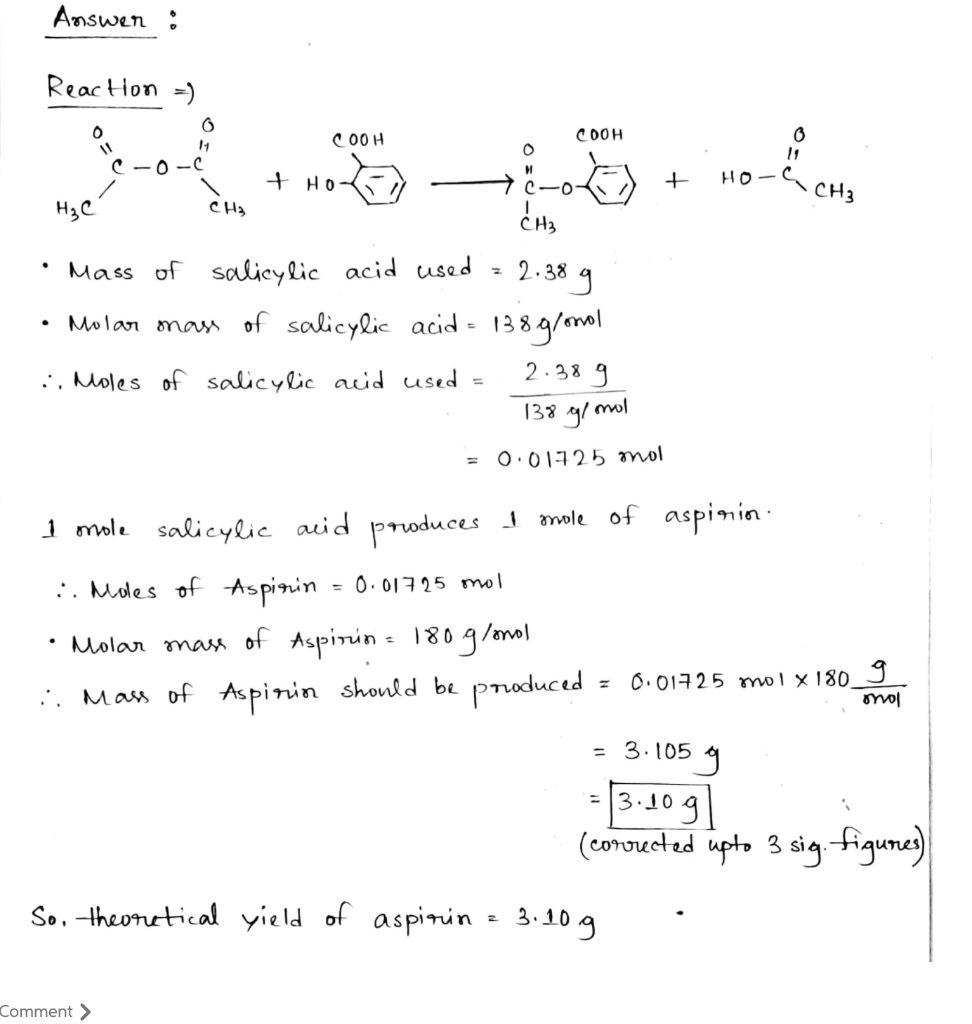 Answer :
Reaction ⇒
O O COOH O COOH O
C-O-C + HO → C-O + HO-C
H3C CH3 CH3 CH3
• Mass of salicylic acid used = 2.38 g
• Molar mass of salicylic acid = 138 g/mol
∴ Moles of salicylic acid used = 2.38 g
138 g/mol
= 0.01725 mol
1 mole salicylic acid produces 1 mole of aspirin.
∴ Moles of Aspirin = 0.01725 mol
• Molar mass of Aspirin = 180 g/mol
∴ Mass of Aspirin should be produced = 0.01725 mol × 180 g
mol
= 3.105 g
= 3.10 g
(corrected upto 3 sig. figures)
So, theoretical yield of aspirin = 3.10 g
Comment >